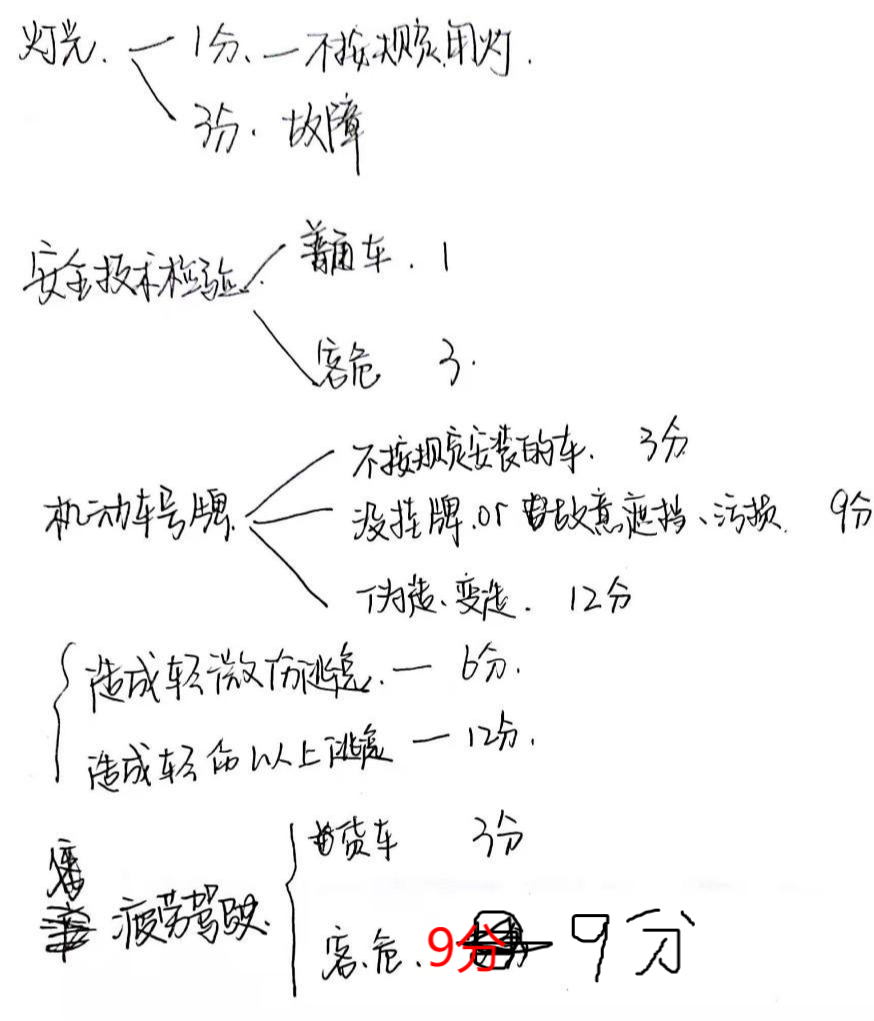 灯光. — 1分. — 不按规定用灯.
3分. 故障
普通车. 1
安全技术检验.
客危 3.
不按规定安装的车. 3分
机动车号牌.
没挂牌.or 故意遮挡、污损. 9分
伪造、变造. 12分
造成轻微伤逃逸. — 6分.
造成轻伤以上逃逸 — 12分.
货车 3分
疲劳驾驶.
客.危. 9分 9分